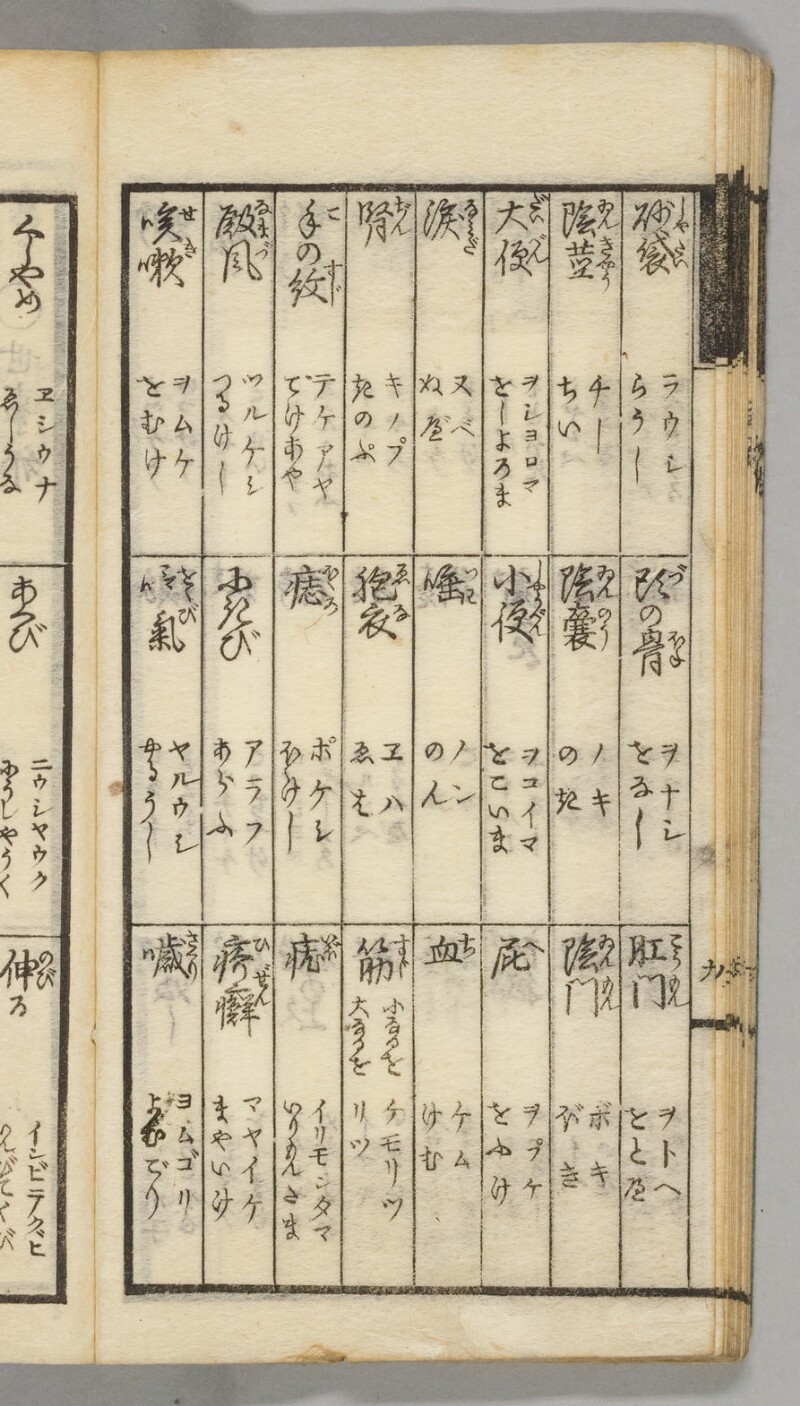 砂袋
ラウシ
らうし
陰莖
チー
ちい
大便
ヲシヨロマ
をしよろま
涙
ヌベ
ぬべ
腎
キノプ
きのぷ
手の紋
テケアヤ
てけあや
癜風
ツルケシ
つるけし
咳嗽
せき
ヲムケ
をむけ
の骨
ヲナシ
をなし
陰嚢
ノキ
のき
小便
ヲコイマ
をこいま
唾
ノン
のん
胞衣
ヱハ
ゑは
痣
ポケシ
ぽけし
にきび
アラフ
あらふ
氣
ヤルウシ
やるうし
肛門
ヲトヘ
をとへ
陰門
ボキ
ぼき
屁
へ
ヲプケ
をふけ
血
ち
ケム
けむ
筋
小なるを ケモリツ
大なるを リツ
疣
イリモンタマ
いりもんたま
疥癬
ひぜん
マヤイケ
まやいけ
ヨムゴリ
よむごり
くしやめ
ヱシウナ
ゑしうな
あくび
ニウシヤウク
にうしやうく
伸る
のび